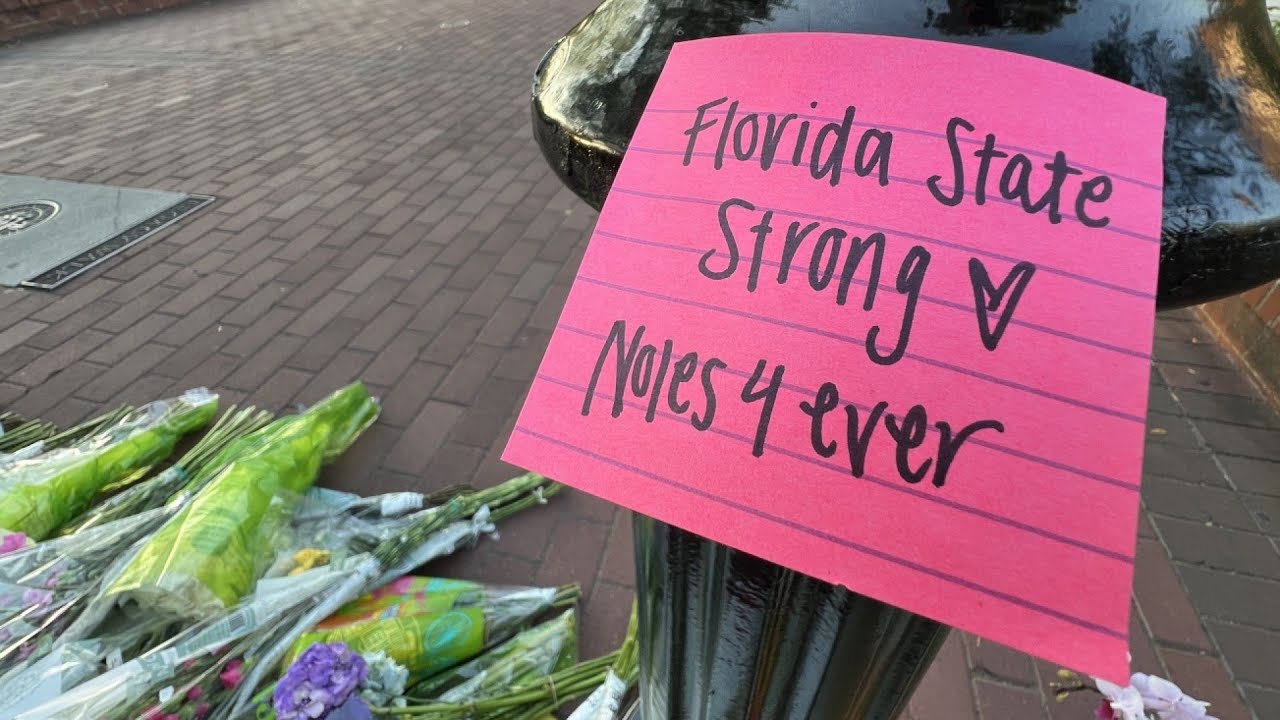 Florida State
Strong
Noles 4 ever